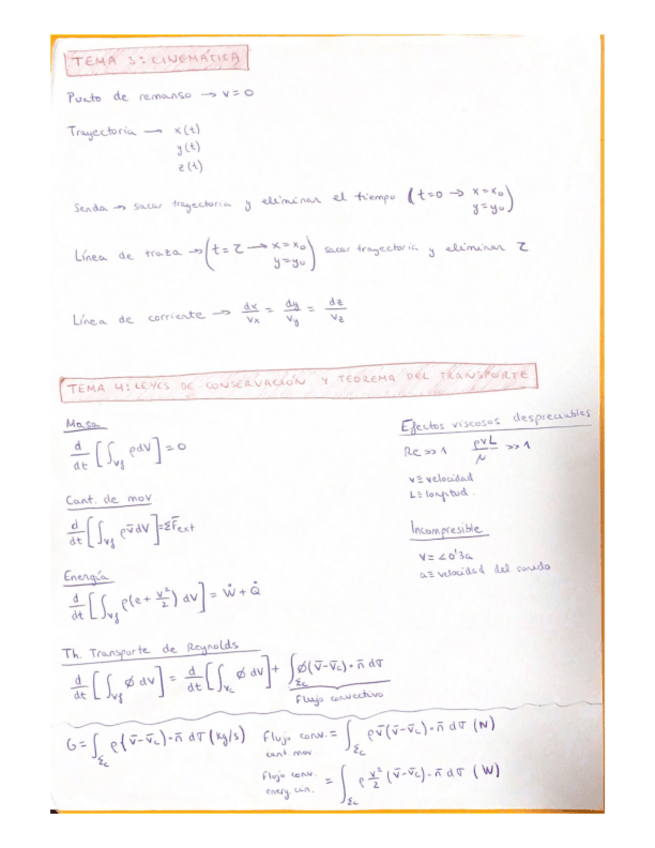 TEMA 3: CINEMÁTICA
Punto de remanso → v = 0
Trayectoria → x(t)
y(t)
z(t)
Senda → sacar trayectoria y eliminar el tiempo (t=0 → x=x₀
y=y₀)
Línea de traza → (t=τ → x=x₀
y=y₀) sacar trayectoria y eliminar τ
Línea de corriente → dx/Vx = dy/Vy = dz/Vz
TEMA 4: LEYES DE CONSERVACIÓN Y TEOREMA DEL TRANSPORTE
Masa
d/dt [∫_Vf ρdV] = 0
Cant. de mov
d/dt [∫_Vf ρv̄dV] = ΣF̄ext
Energía
d/dt [∫_Vf ρ(e + v²/2) dV] = Ẇ + Q̇
Efectos viscosos despreciables
Re >> 1 ρvL/μ >> 1
v ≡ velocidad
L ≡ longitud.
Incompresible
v = <0'3a
a ≡ velocidad del sonido
Th. Transporte de Reynolds
d/dt [∫_Vf φ dV] = d/dt [∫_Vc φ dV] + ∫_Σc φ(v̄-v̄c)·n̄ dσ
Flujo convectivo
G = ∫_Σc ρ(v̄-v̄c)·n̄ dσ (kg/s)
Flujo conv. cant. mov = ∫_Σc ρv̄(v̄-v̄c)·n̄ dσ (N)
Flujo conv. energ. cin. = ∫_Σc ρ v²/2 (v̄-v̄c)·n̄ dσ (W)